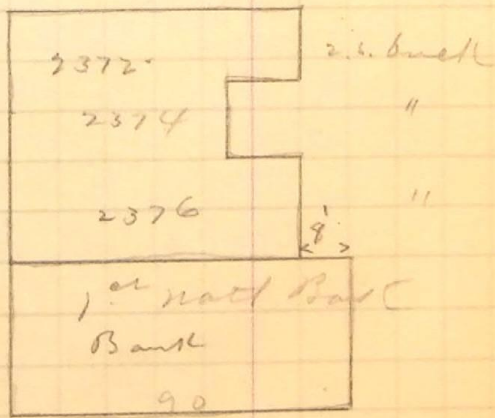 2372 2.s. brick
2374 "
2376 "
8'
1st Natl Bank
Bank
90